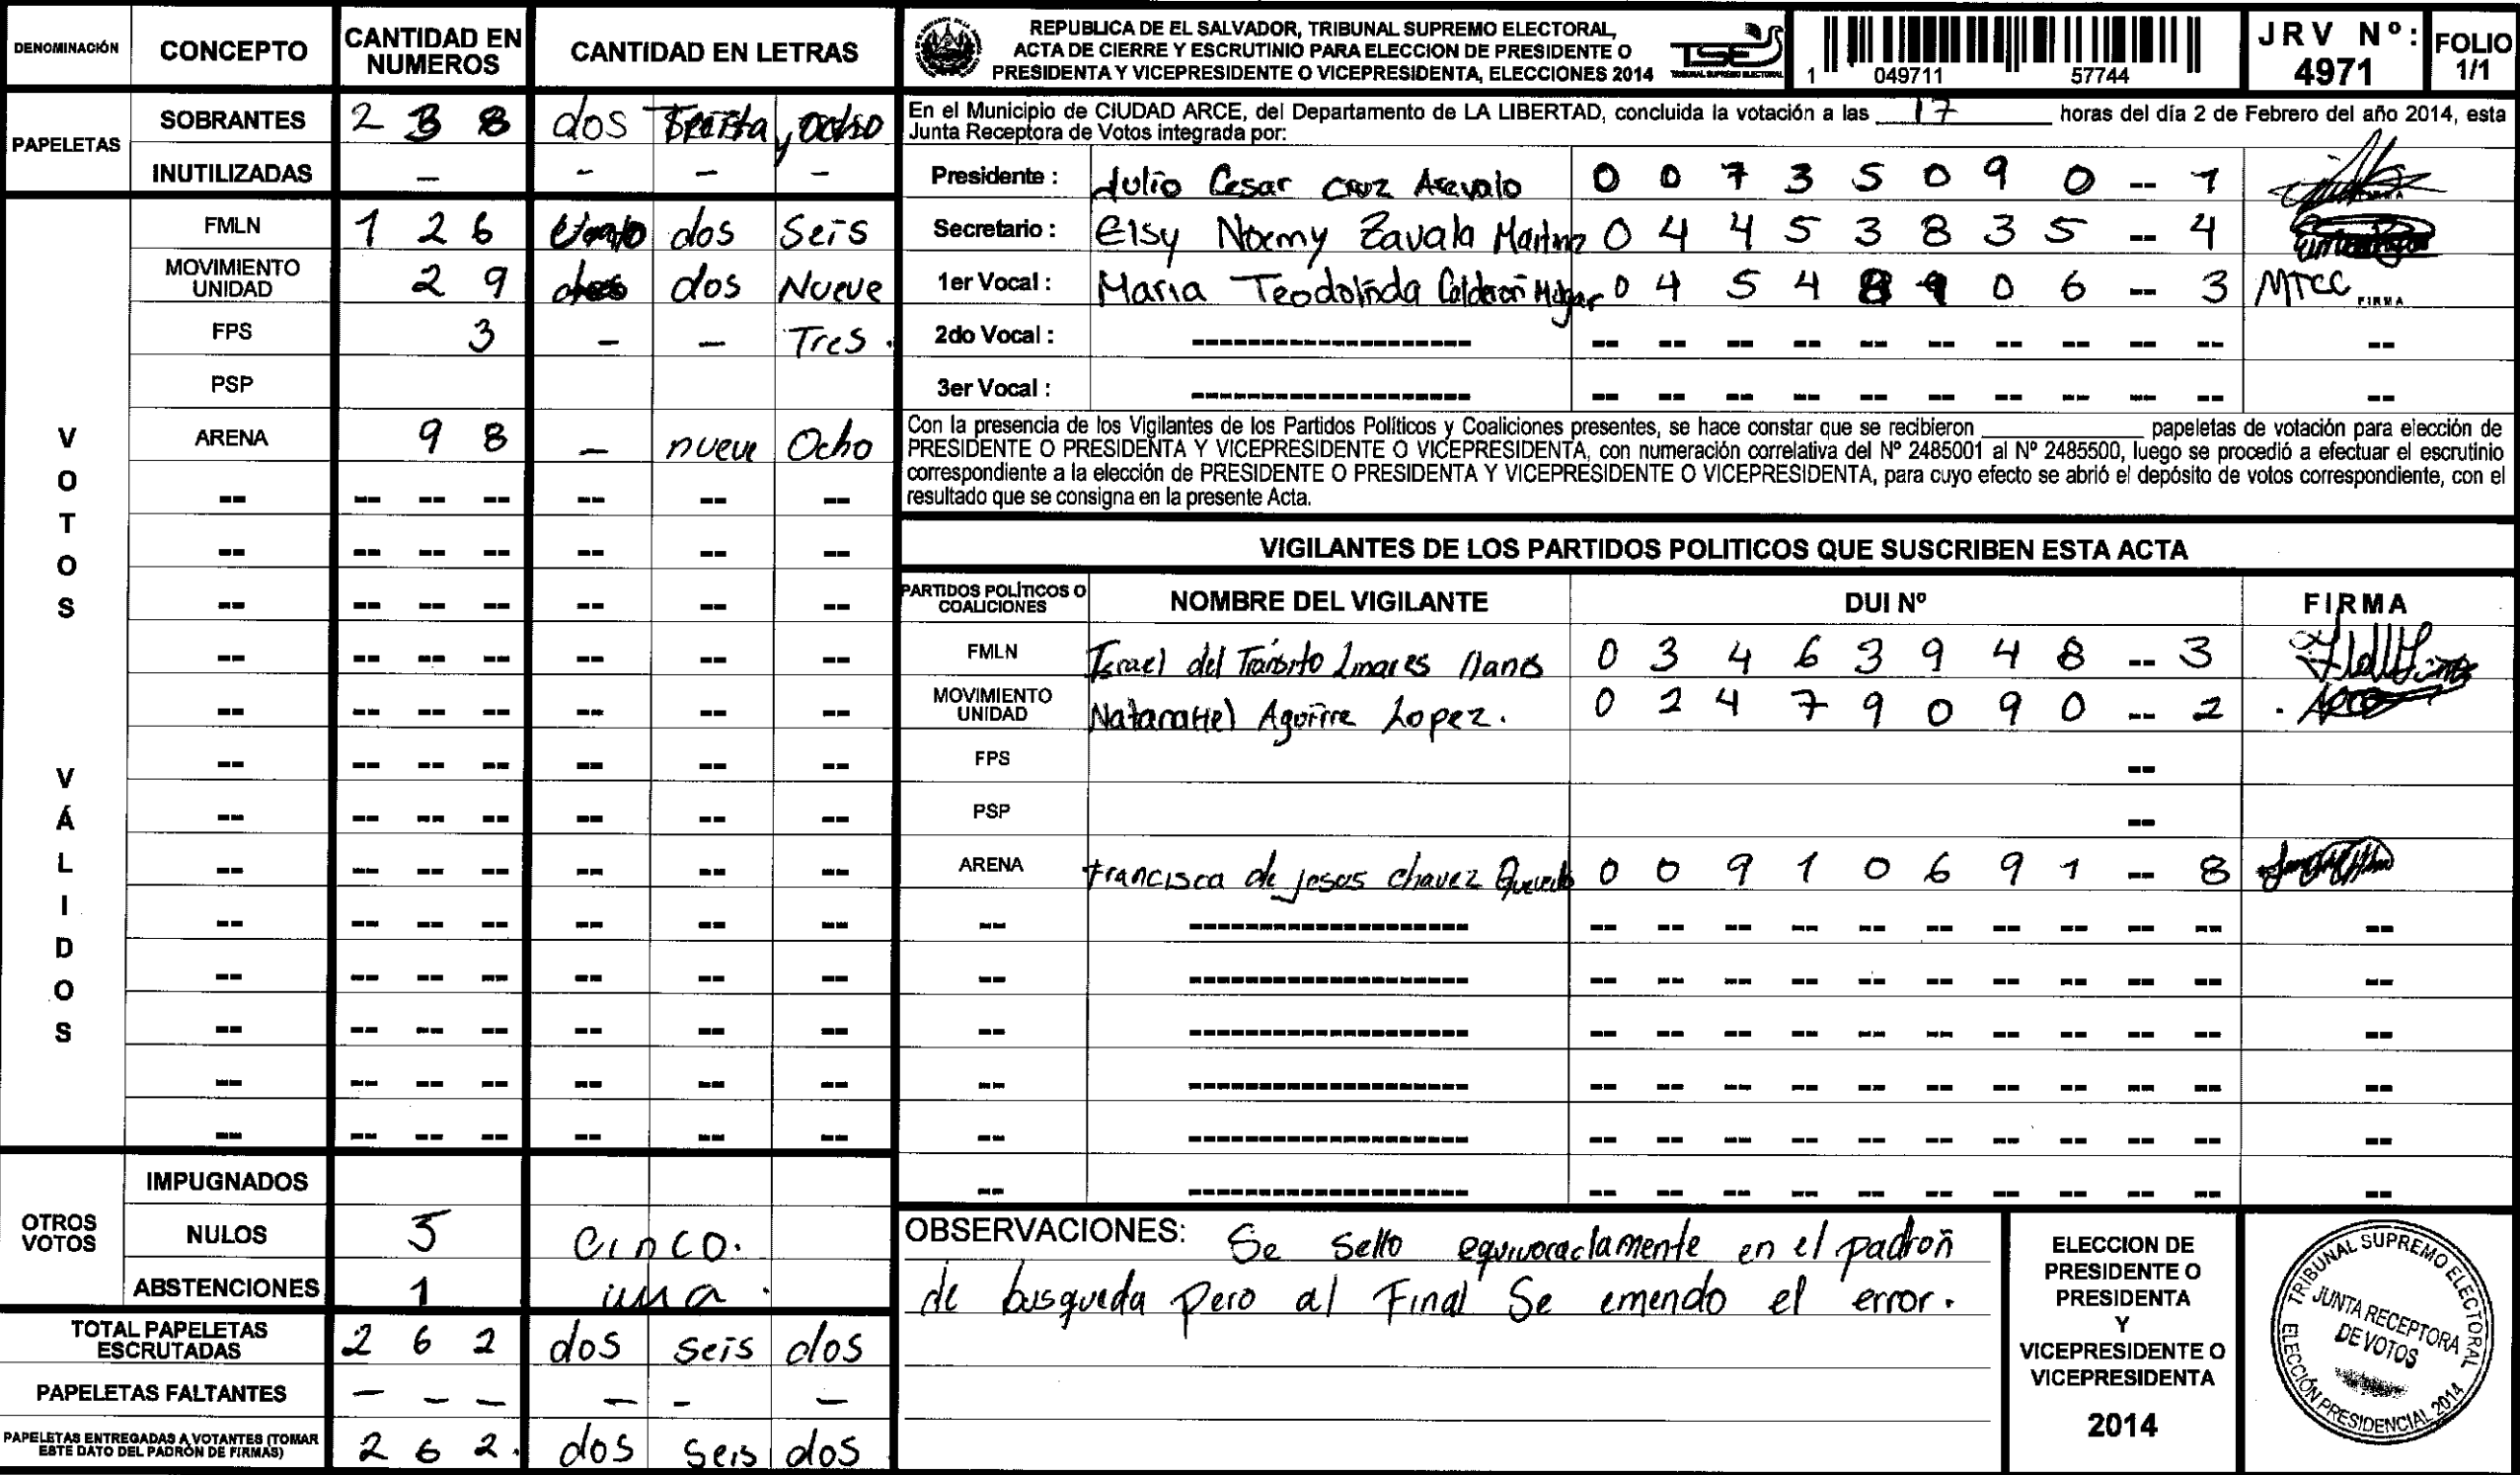 DENOMINACIÓN CONCEPTO CANTIDAD EN NUMEROS CANTIDAD EN LETRAS
PAPELETAS
SOBRANTES 2 3 8 dos Treinta y ocho
INUTILIZADAS – – – –
VOTOS VÁLIDOS
FMLN 1 2 6 uno dos Seis
MOVIMIENTO UNIDAD 2 9 dos Nueve
FPS 3 – – Tres.
PSP
ARENA 9 8 – nueve Ocho
OTROS VOTOS
IMPUGNADOS
NULOS 5 cinco.
ABSTENCIONES 1 una.
TOTAL PAPELETAS ESCRUTADAS 2 6 2 dos seis dos
PAPELETAS FALTANTES – – – – – –
PAPELETAS ENTREGADAS A VOTANTES (TOMAR ESTE DATO DEL PADRÓN DE FIRMAS) 2 6 2. dos seis dos
REPUBLICA DE EL SALVADOR, TRIBUNAL SUPREMO ELECTORAL,
ACTA DE CIERRE Y ESCRUTINIO PARA ELECCION DE PRESIDENTE O
PRESIDENTA Y VICEPRESIDENTE O VICEPRESIDENTA, ELECCIONES 2014
TSE
TRIBUNAL SUPREMO ELECTORAL
1 049711 57744
JRV Nº: 4971
FOLIO 1/1
En el Municipio de CIUDAD ARCE, del Departamento de LA LIBERTAD, concluida la votación a las 17 horas del día 2 de Febrero del año 2014, esta
Junta Receptora de Votos integrada por:
Presidente : Julio Cesar Cruz Arevalo 0 0 7 3 5 0 9 0 -- 1
Secretario : Elsy Noemy Zavala Martinez 0 4 4 5 3 8 3 5 -- 4
1er Vocal : Maria Teodolinda Calderon 0 4 5 4 8 9 0 6 -- 3 MTCC FIRMA
2do Vocal :
3er Vocal :
Con la presencia de los Vigilantes de los Partidos Políticos y Coaliciones presentes, se hace constar que se recibieron ______ papeletas de votación para elección de
PRESIDENTE O PRESIDENTA Y VICEPRESIDENTE O VICEPRESIDENTA, con numeración correlativa del Nº 2485001 al Nº 2485500, luego se procedió a efectuar el escrutinio
correspondiente a la elección de PRESIDENTE O PRESIDENTA Y VICEPRESIDENTE O VICEPRESIDENTA, para cuyo efecto se abrió el depósito de votos correspondiente, con el
resultado que se consigna en la presente Acta.
VIGILANTES DE LOS PARTIDOS POLITICOS QUE SUSCRIBEN ESTA ACTA
PARTIDOS POLÍTICOS O COALICIONES NOMBRE DEL VIGILANTE DUI Nº FIRMA
FMLN Israel del Transito Linares 0 3 4 6 3 9 4 8 -- 3
MOVIMIENTO UNIDAD Natanahel Aguirre Lopez. 0 2 4 7 9 0 9 0 -- 2
FPS --
PSP --
ARENA Francisca de jesus chavez 0 0 9 1 0 6 9 1 -- 8
OBSERVACIONES: Se sello equivocadamente en el padron
de busqueda Pero al Final Se emendo el error.
ELECCION DE
PRESIDENTE O
PRESIDENTA
Y
VICEPRESIDENTE O
VICEPRESIDENTA
2014
TRIBUNAL SUPREMO ELECTORAL
JUNTA RECEPTORA
DE VOTOS
ELECCIÓN PRESIDENCIAL 2014